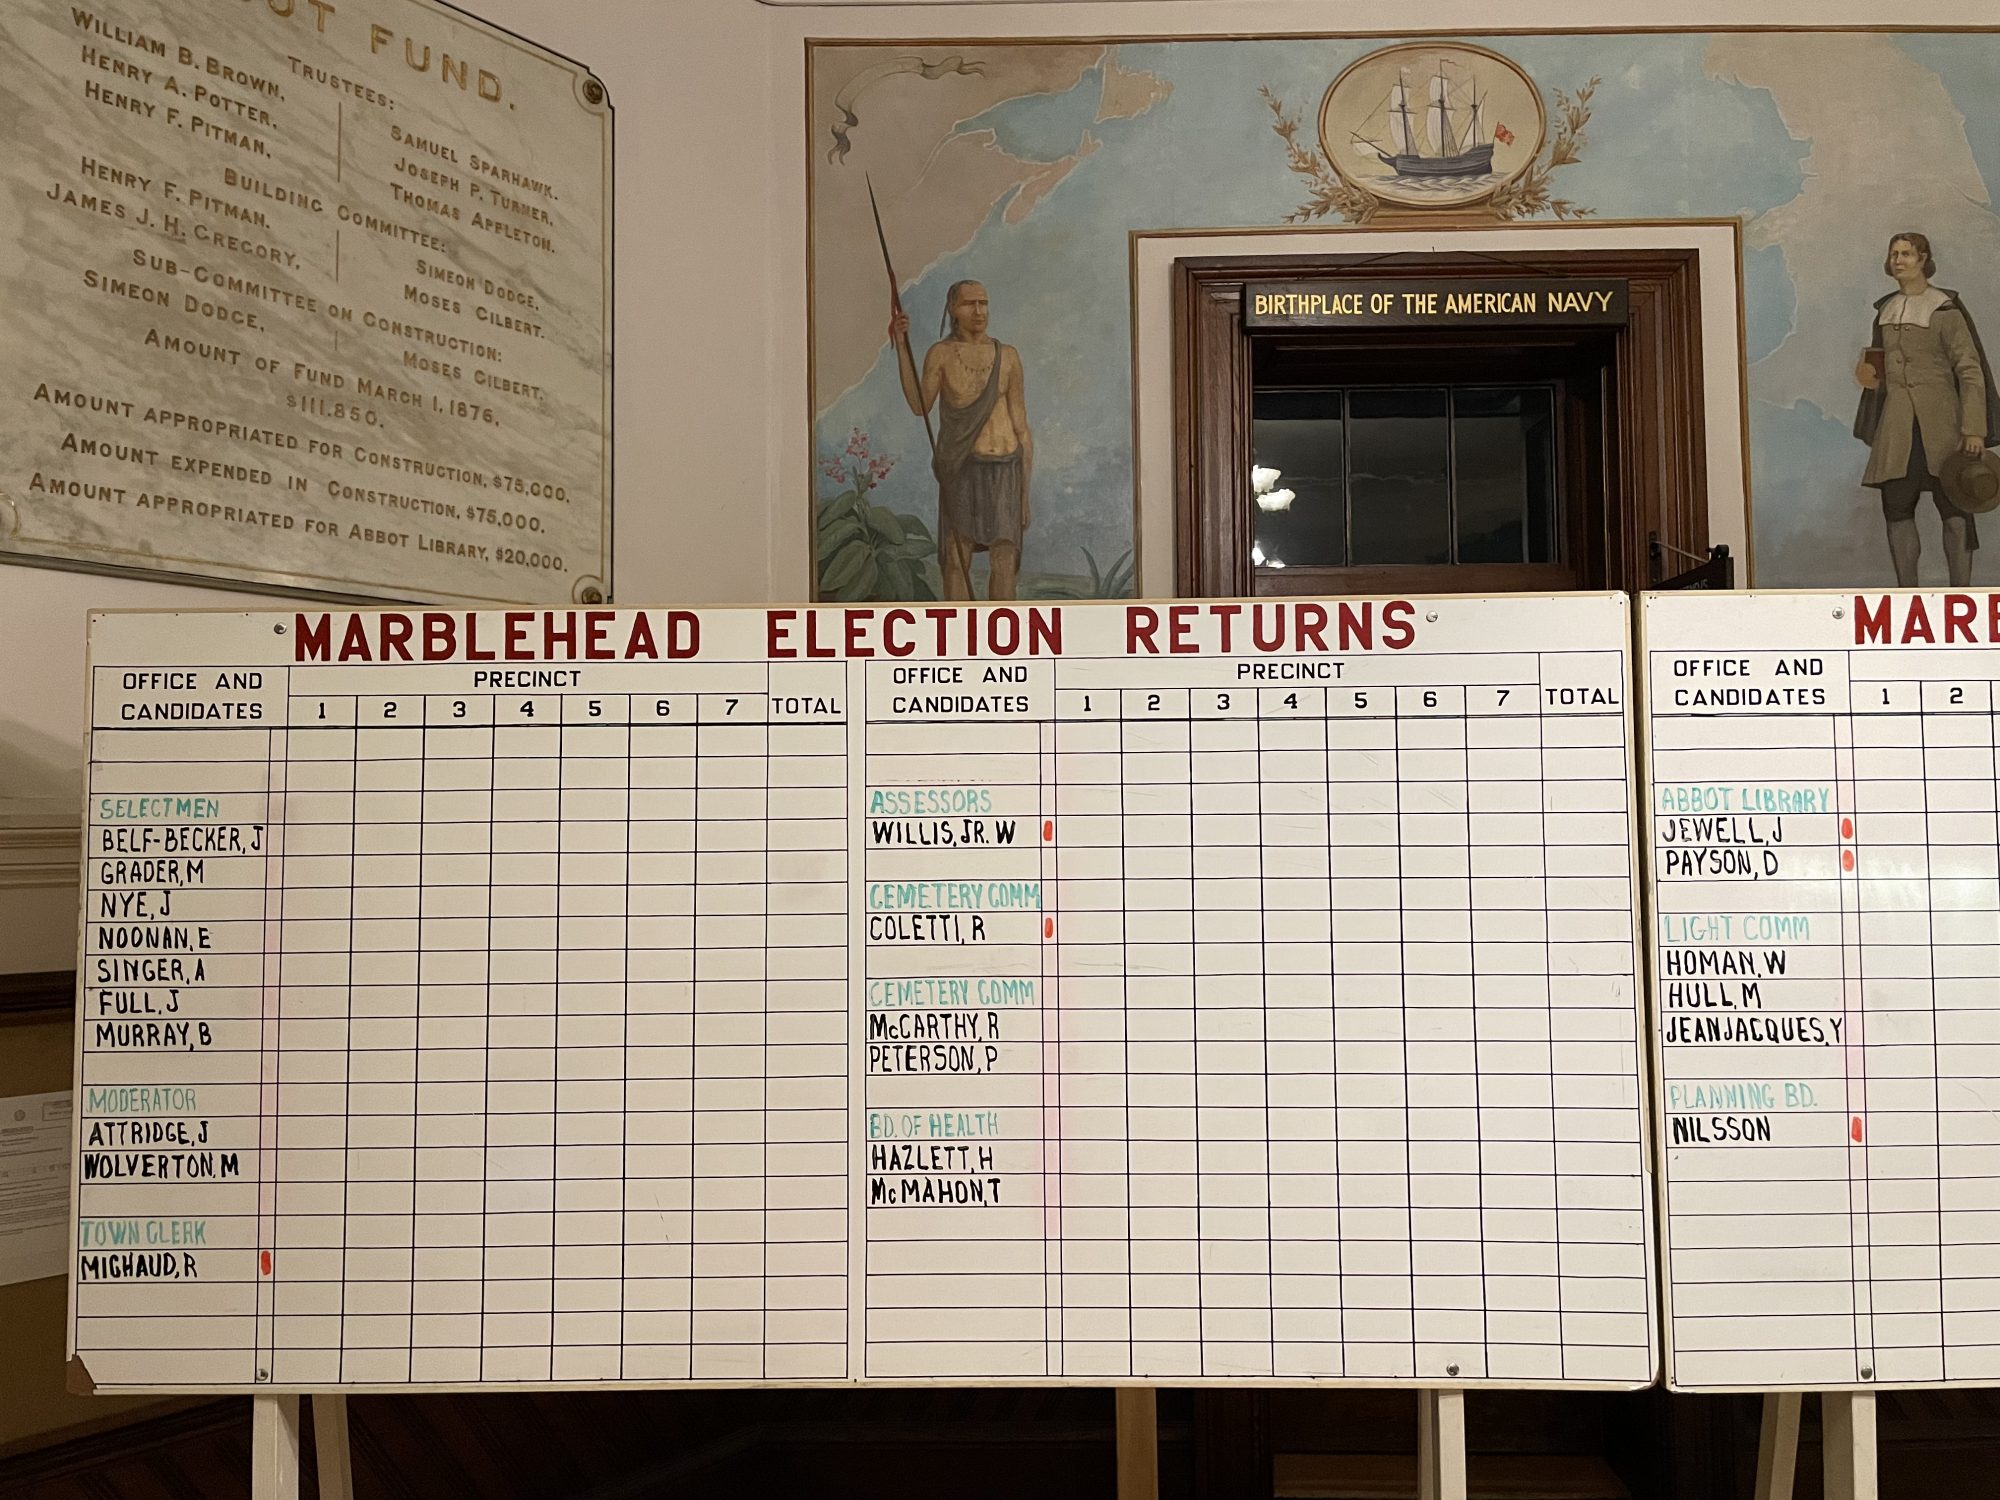 OT FUND.
TRUSTEES:
WILLIAM B. BROWN,
HENRY A. POTTER,
HENRY F. PITMAN,
SAMUEL SPARHAWK,
JOSEPH P. TURNER,
THOMAS APPLETON.
BUILDING COMMITTEE:
HENRY F. PITMAN,
JAMES J. H. GREGORY,
SIMEON DODGE,
MOSES GILBERT.
SUB-COMMITTEE ON CONSTRUCTION:
SIMEON DODGE,
MOSES GILBERT.
AMOUNT OF FUND MARCH 1, 1876,
$111.850.
AMOUNT APPROPRIATED FOR CONSTRUCTION, $75,000.
AMOUNT EXPENDED IN CONSTRUCTION, $75,000.
AMOUNT APPROPRIATED FOR ABBOT LIBRARY, $20,000.
BIRTHPLACE OF THE AMERICAN NAVY
MARBLEHEAD ELECTION RETURNS
OFFICE AND CANDIDATES
PRECINCT
1 2 3 4 5 6 7 TOTAL
SELECTMEN
BELF-BECKER, J
GRADER, M
NYE, J
NOONAN, E
SINGER, A
FULL, J
MURRAY, B
MODERATOR
ATTRIDGE, J
WOLVERTON, M
TOWN CLERK
MICHAUD, R
OFFICE AND CANDIDATES
PRECINCT
1 2 3 4 5 6 7 TOTAL
ASSESSORS
WILLIS, JR. W
CEMETERY COMM
COLETTI, R
CEMETERY COMM
McCARTHY, R
PETERSON, P
BD. OF HEALTH
HAZLETT, H
McMAHON, T
MARB
OFFICE AND CANDIDATES
1 2
ABBOT LIBRARY
JEWELL, J
PAYSON, D
LIGHT COMM
HOMAN, W
HULL, M
JEANJACQUES, Y
PLANNING BD.
NILSSON